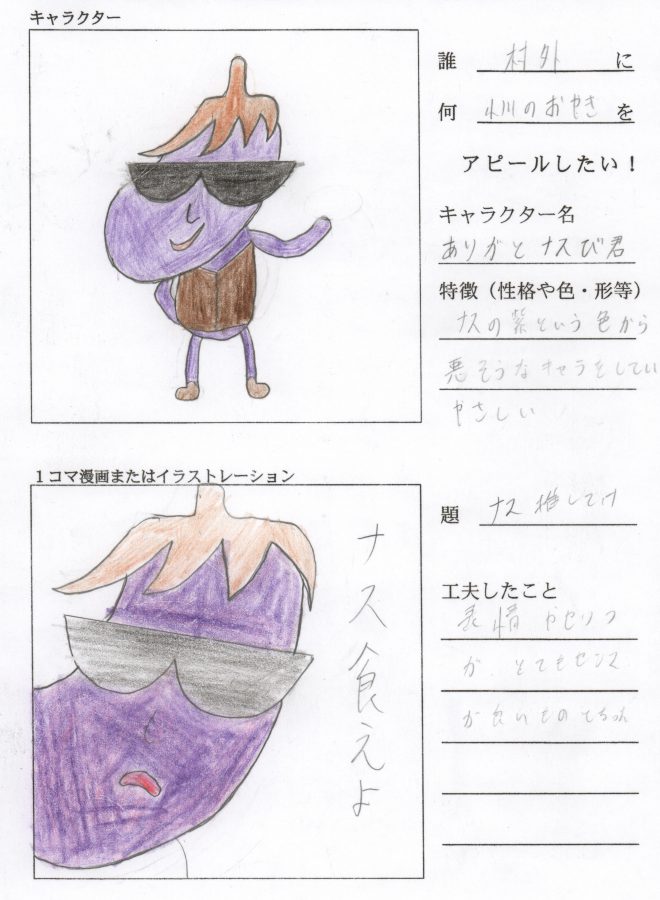 キャラクター
誰 村外 に
何 小川のおやき を
アピールしたい！
キャラクター名
ありがとナスび君
特徴（性格や色・形等）
ナスの紫という色から
悪そうなキャラをしてい
やさしい
１コマ漫画またはイラストレーション
ナス食えよ
題 ナス推してけ
工夫したこと
表情やセリフ
が とてもセンス
が良いもの